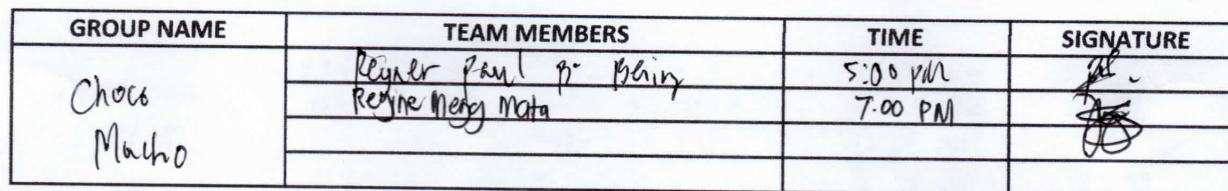 GROUP NAME TEAM MEMBERS TIME SIGNATURE
Choco
Macho
Reyner Paul B. 5:00 PM
Regine Meng Mata 7:00 PM